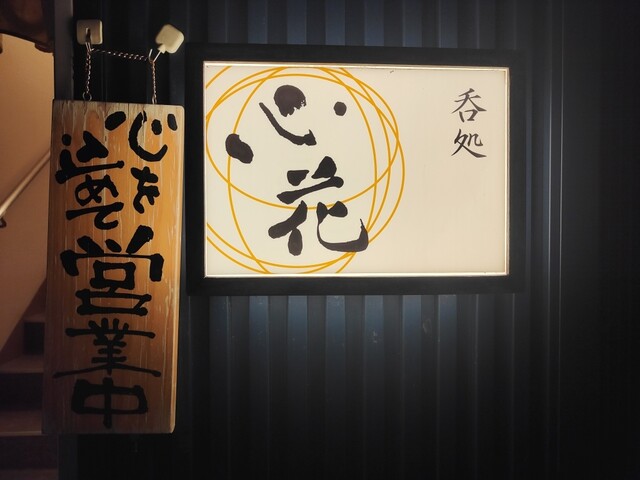 呑処
心花
心を
込めて
営業中